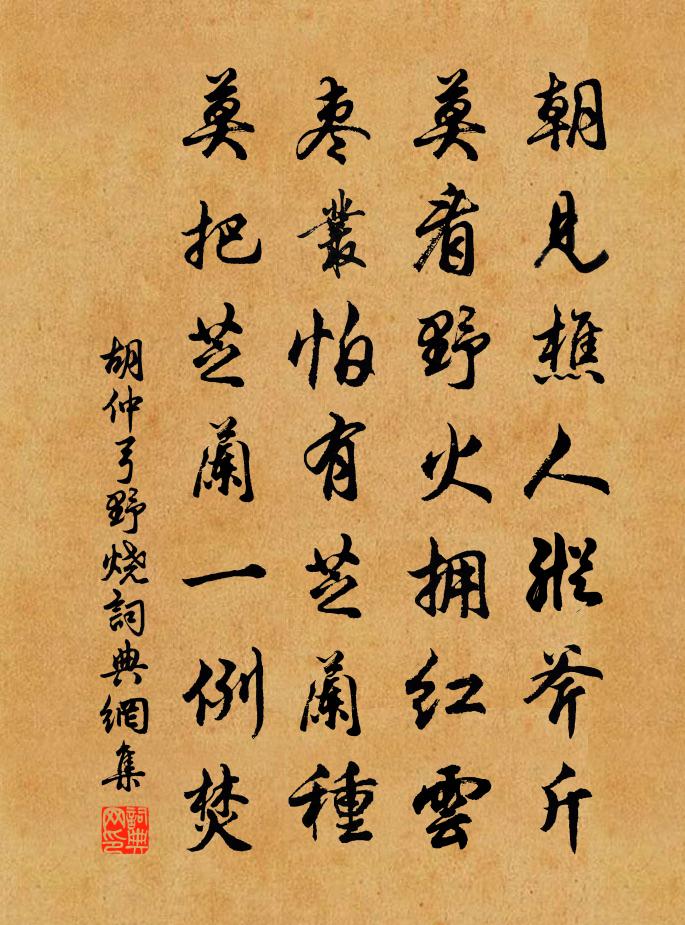 朝見樵人縱斧斤
莫看野火拥紅雲
枣叢怕有芝蘭種
莫把芝蘭一例焚
胡仲弓野烧詞典網集
詞典网印